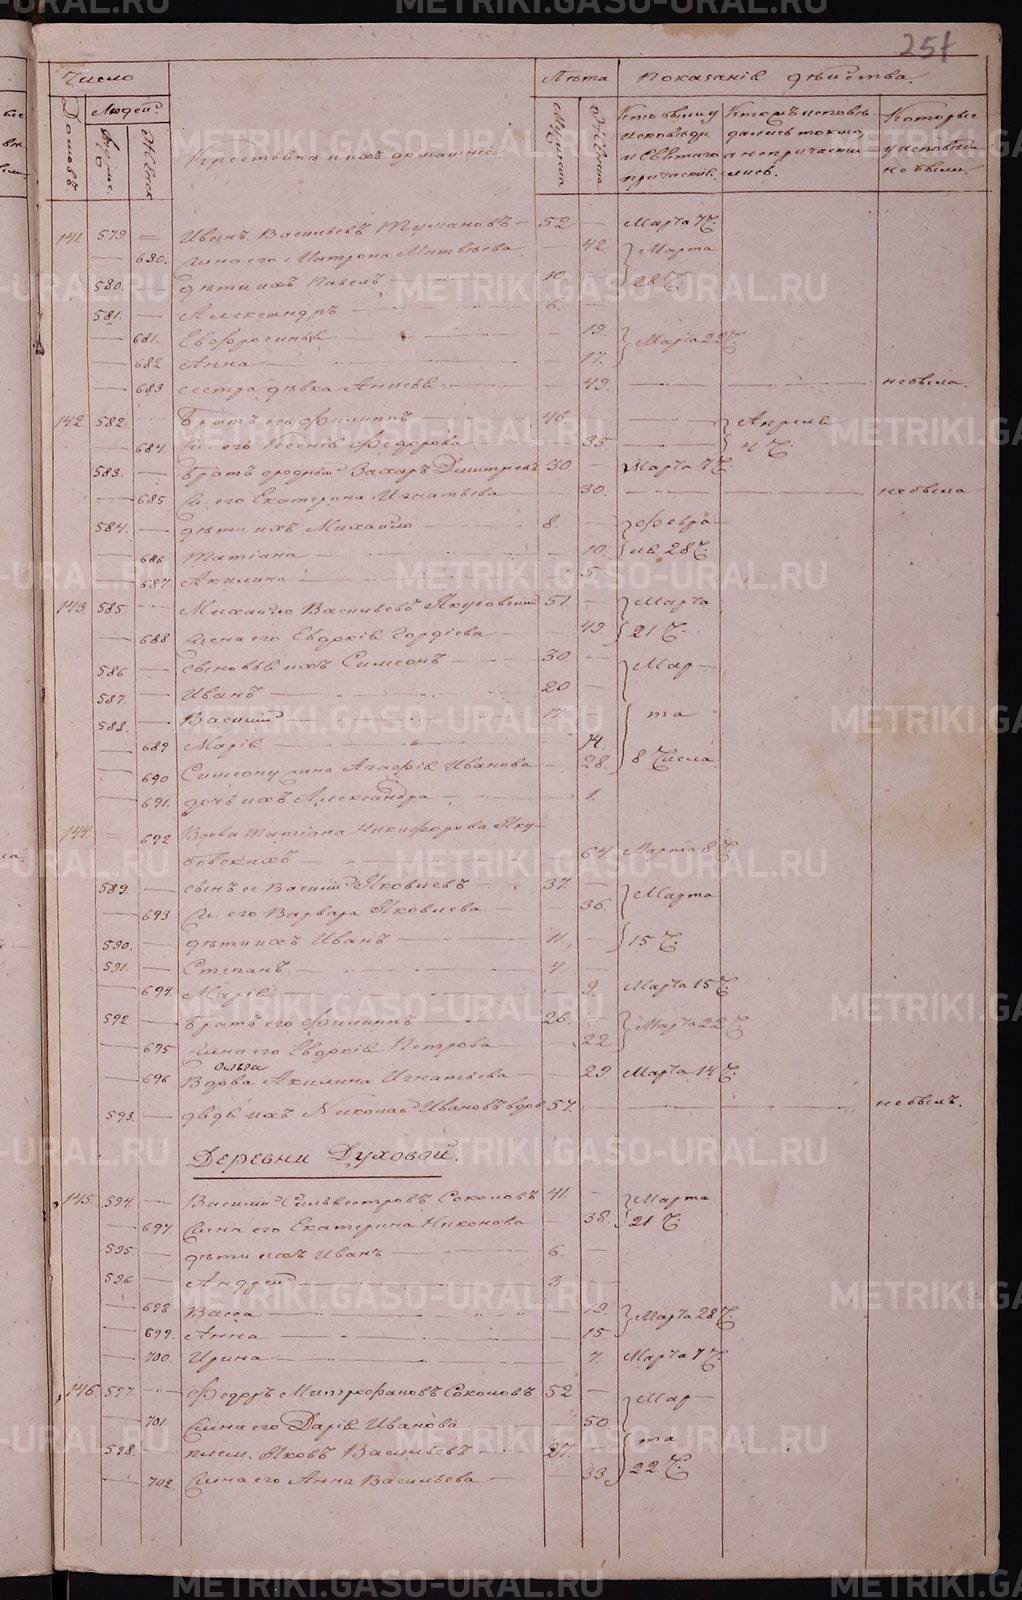 257
Число
Лѣта Показаніе дѣйства.
Домовъ Людей.
Мужска Женска
Крестьянъ и ихъ домашніе.
Мужеска Женска
Кто были у исповѣди и Святаго причастія.
Кто исповѣдались токмо, а не причастились.
Которые у исповѣди не были.
141. 579. — Иванъ Васильевъ Тумановъ — 52 — Марта 7 Ч.
— 680. жена его Матрона Матвѣева — 42. Марта
580. — дѣти ихъ Павелъ 10. — 28 Ч.
581. — Александръ 6. —
— 681. Евфросинія — 19.
— 682 Анна — 17. Марта 22 Ч.
— 683 сестра дѣвка Анисья — 49. — — не была.
142 582 — Братъ его Филиппъ 46. — — Апрѣля
— 684. Ж. его Ксенія Федорова — 35. — 4 Ч.
583. — Братъ сродный Захаръ Дмитріевъ 30 — Марта 7 Ч.
— 685 Ж. его Екатерина Игнатьева — 30. — — не была
584. — дѣти ихъ Михайло 8. — Февра-
— 686 Татіана — 10. ля 28 Ч.
— 687 Акилина — 5.
143 585 — Михайло Васильевъ Якубовский 51. — Марта
— 688 жена его Евдокія Гордіева — 49. 21 Ч.
586 — сыновья ихъ Симеонъ 30. — Мар-
587. — Иванъ 20 —
588. — Василий 17. — та
— 689 Марія — 14.
— 690 Симеону жена Агафія Иванова — 28. 8 Числа
— 691. дочь ихъ Александра — 1.
144 — 692 Вдова Татіана Никифорова Яку-
бовскихъ — 64. Марта 8 Ч.
589. — сынъ ее Василий Яковлевъ 37. — Марта
— 693 Ж. его Варвара Яковлева — 36.
590. — дѣти ихъ Иванъ 11. — 15 Ч.
591. — Степанъ 7. —
— 694. Марія — 9. Марта 15 Ч.
592 — Братъ его Филиппъ 26. — Марта 22 Ч.
— 695 жена его Евдокія Петрова — 22.
Ольга
— 696 Вдова Акилина Игнатьева — 29. Марта 14 Ч.
593. — дядя ихъ Николай Ивановъ вдов. 57. — — — не былъ.
Деревни Духовой.
145. 594. — Василий Сильвестровъ Соколовъ 41. — Марта
— 697. Жена его Екатерина Никонова — 38. 21 Ч.
595. — дѣти ихъ Иванъ 6. —
596 — Андрей 3 —
— 698 Васса — 19.
— 699. Анна — 15. Марта 28 Ч.
— 700. Ирина — 7. Марта 7 Ч.
146 597. — Федоръ Митрофановъ Соколовъ 52 — Мар-
— 701 Жена его Дарія Иванова — 50 та
598. — плем. Яковъ Васильевъ 27. — 22 Ч.
— 702 Жена его Анна Васильева — 33
METRIKI.GASO-URAL.RU